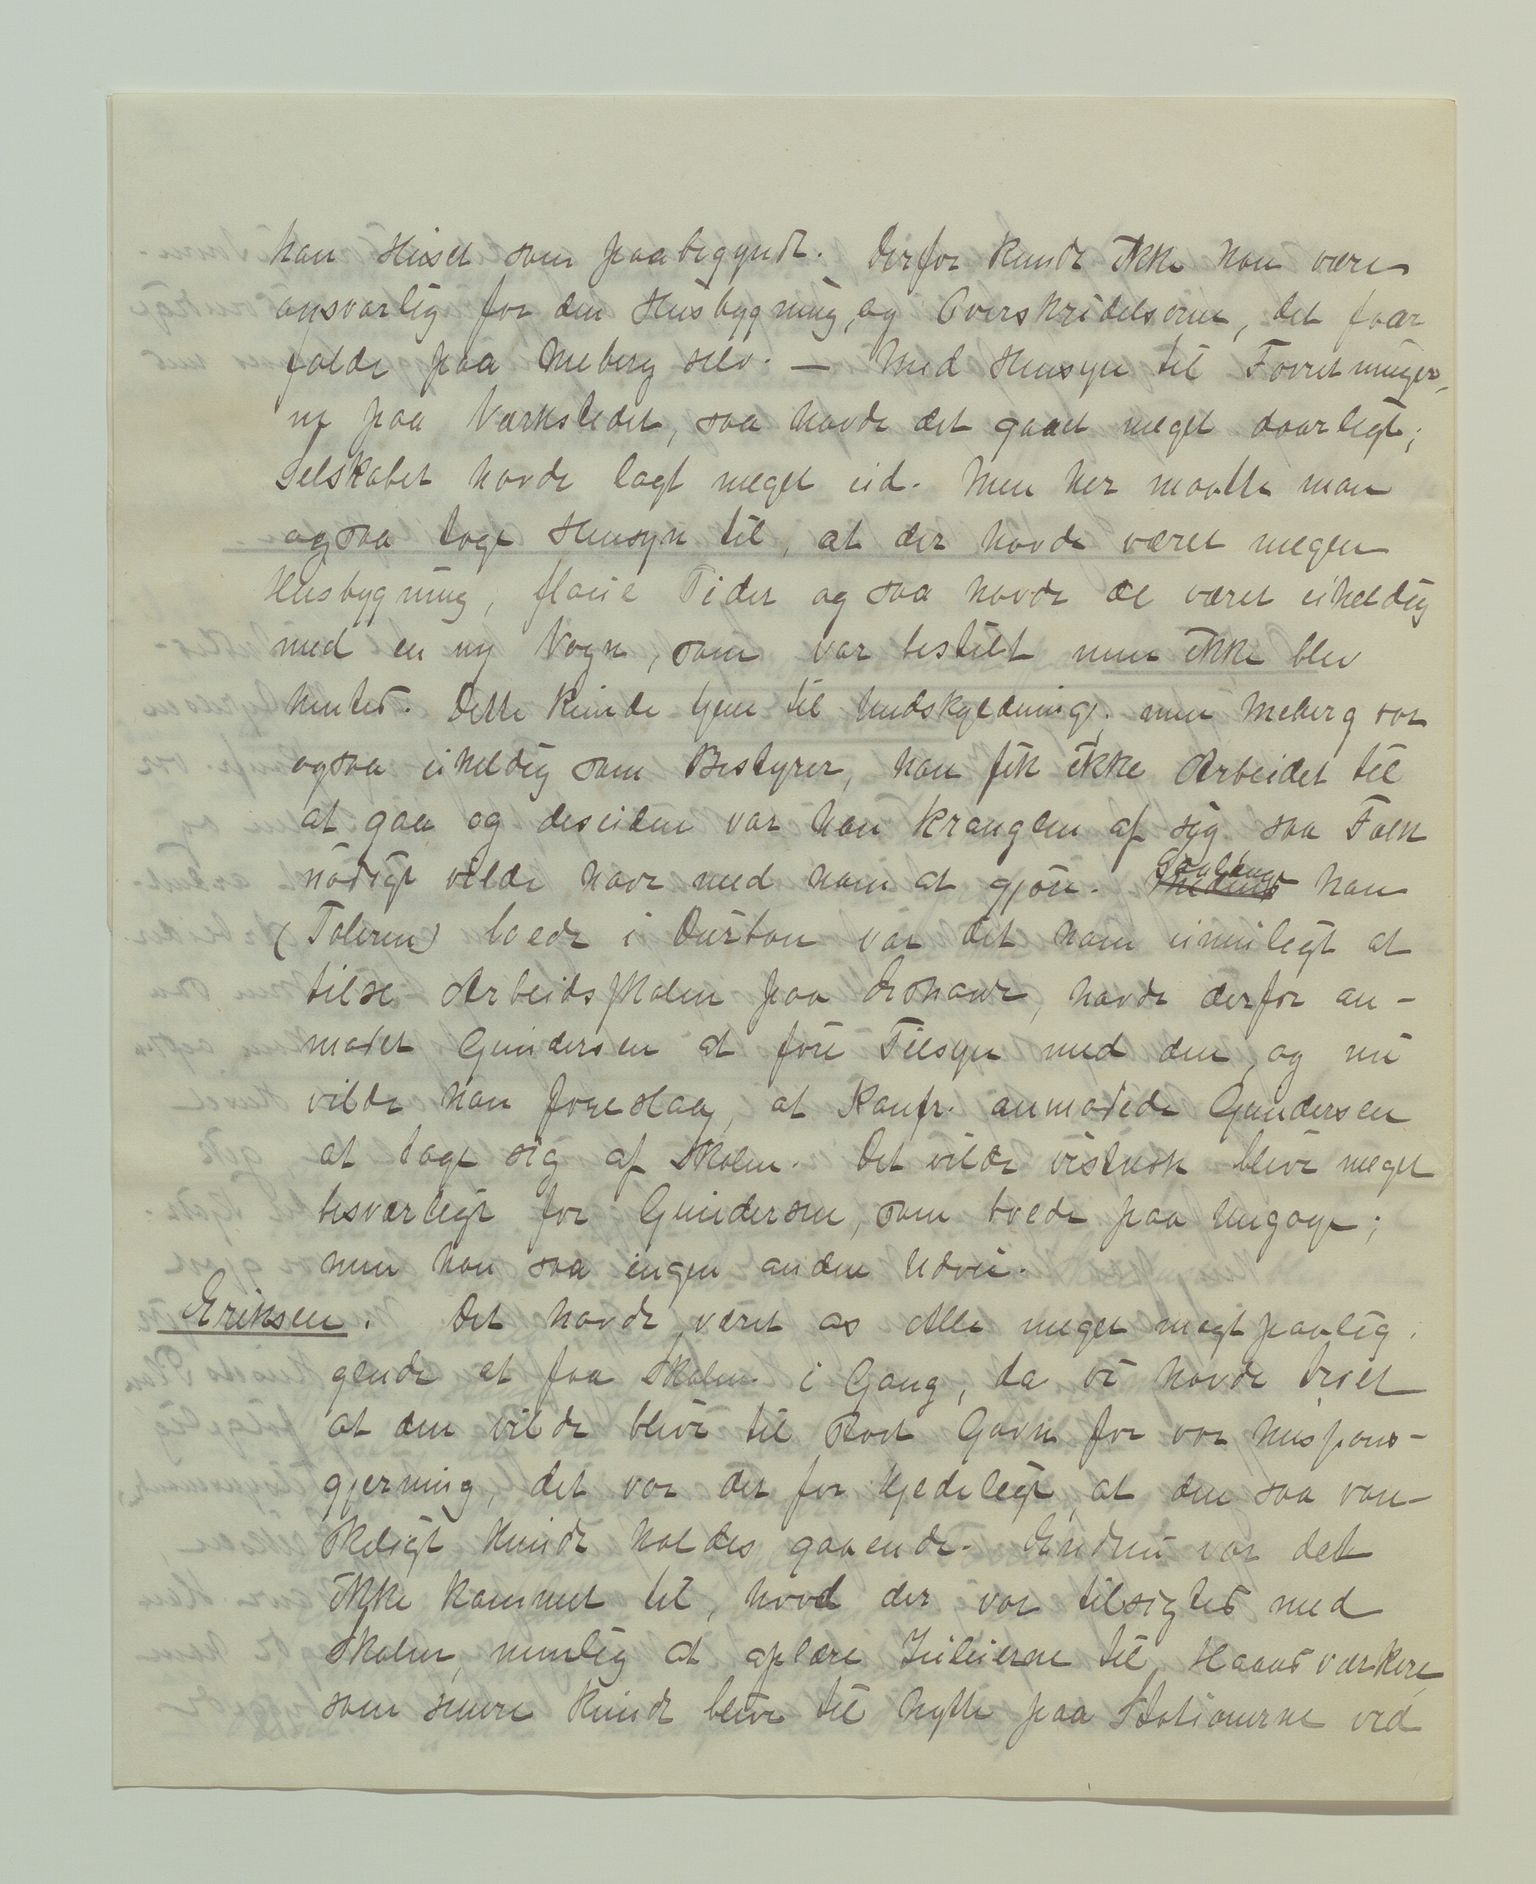 han Huset som paabegyndt. Derfor kunde ikke han være
ansvarlig for den Husbygning, og Overskridelserne, det faar
falde paa Meberg selv. — Med Hensyn til Forretninger-
ne paa Værkstedet, saa havde det gaaet meget daarligt;
Selskabet havde lagt meget ud. Men her maatte man
ogsaa tage Hensyn til, at der havde været megen
Husbygning, flaue Tider og saa havde de været uheldig
med en ny Vogn, som var bestilt men ikke blev
hentet. Dette kunde tjene til Undskyldning; men Meberg var
ogsaa uheldig som Bestyrer, han fik ikke Arbeidet til
at gaa og desuden var han kranglen af sig saa Folk
nødigt vilde have med ham at gjøre. Saalænge han
(Taleren) boede i Durban var det ham umuligt at
tilse Arbeidsskolen paa Eshowe, havde derfor an-
modet Gundersen at føre Tilsyn med den, og nu
vilde han foreslaa, at Konfr. anmodede Gundersen
at tage sig af Skolen. Det vilde vistnok blive meget
besværligt for Gundersen, som boede paa Ungoye;
men han saa ingen anden Udvei.
Eriksen. Det havde været os Alle meget magtpaalig
gende at faa Skolen i Gang, da vi havde troet
at den vilde blive til stort Gavn for vor Missions-
gjerning, det var det for kjedeligt, at den saa van-
skeligt kunde holdes gaaende. Endnu var det
ikke kommet til, hvad der var tilsigtet med
Skolen, nemlig at oplære Zuluerne til Haandværkere,
som senere kunde blive til Nytte paa Stationerne ved